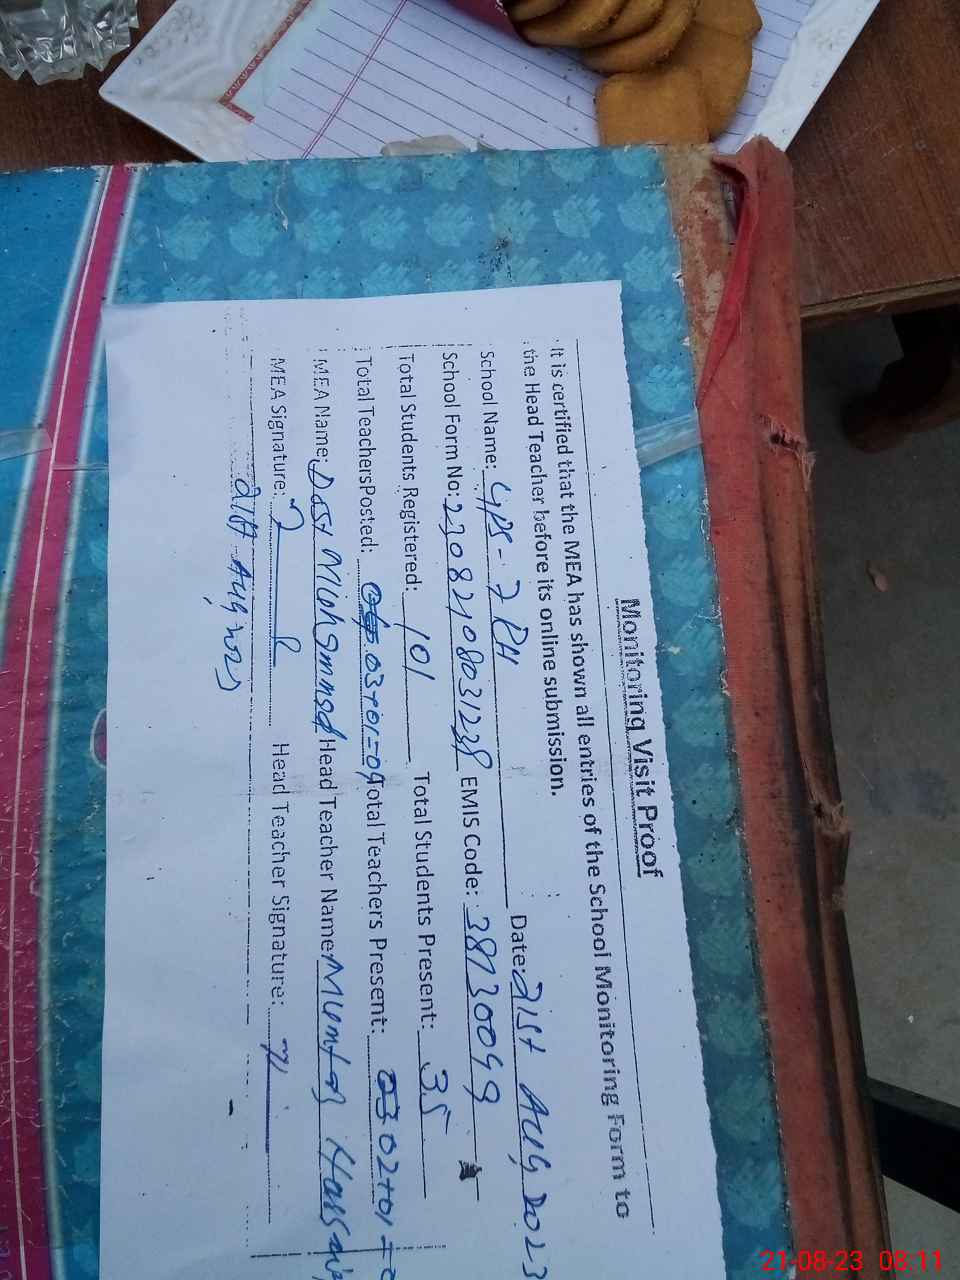 Monitoring Visit Proof
It is certified that the MEA has shown all entries of the School Monitoring Form to
the Head Teacher before its online submission.
School Name: GPS - 7 PH Date: 21st Aug 2023
School Form No: 23082108031238 EMIS Code: 38130099
Total Students Registered: 101 Total Students Present: 35
Total TeachersPosted: 03+01=04 Total Teachers Present: 02+01=
MEA Name: Dost Mohammad Head Teacher Name: Mumtaz
MEA Signature: Head Teacher Signature:
21st Aug 2023
21-08-23 08:11